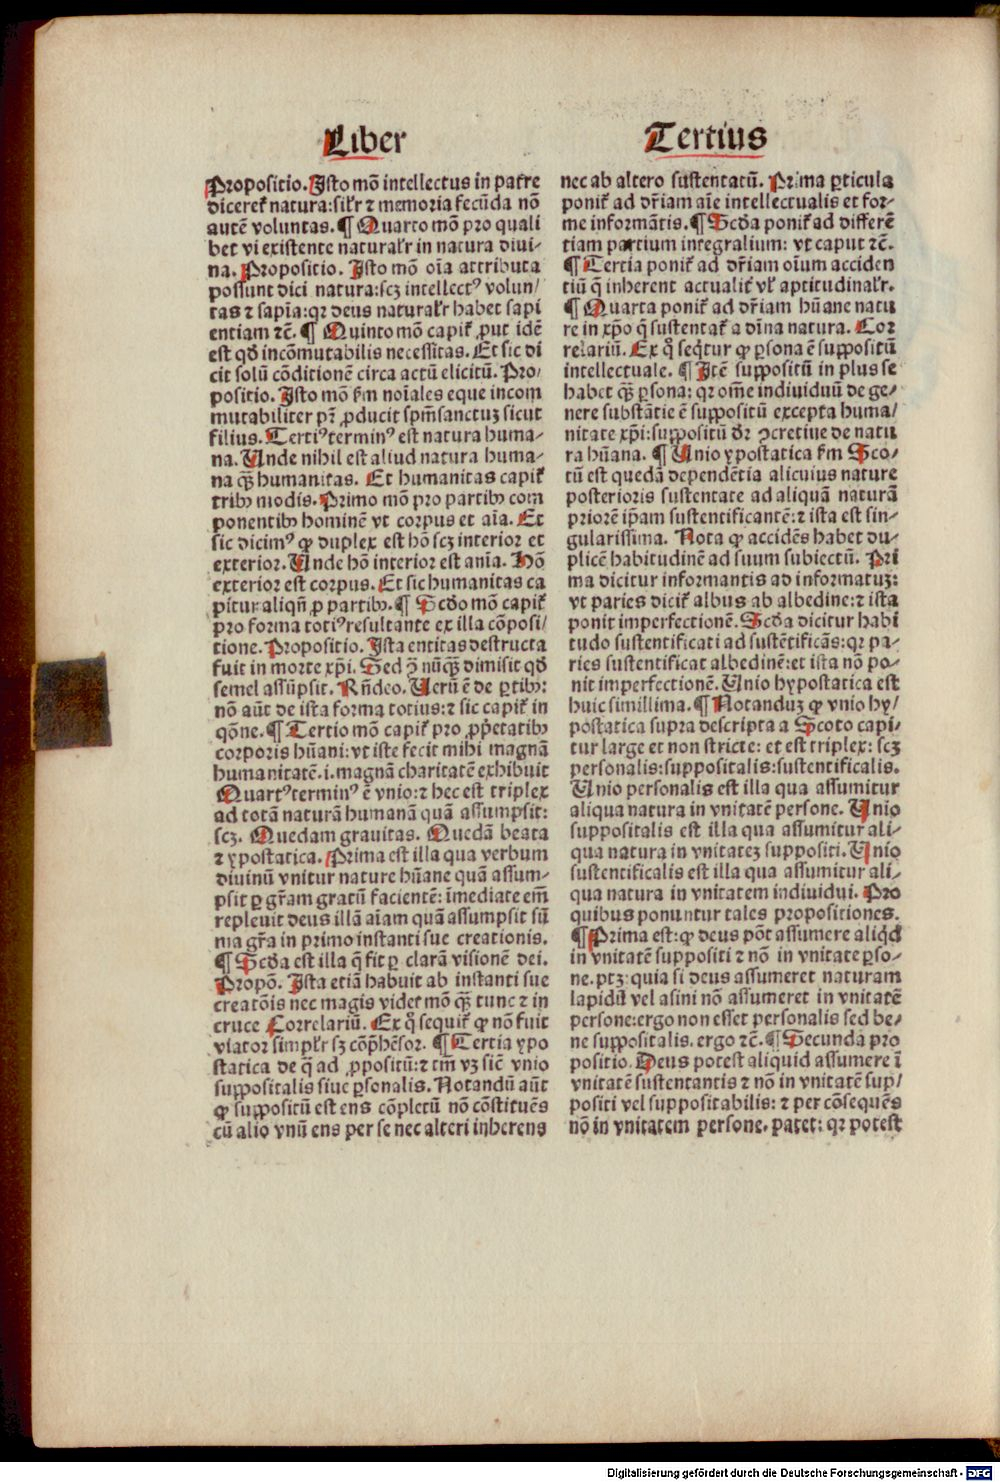 Liber Tertius
Propositio. Isto mō intellectus in patre
diceret̄ natura: silr̄ ⁊ memoria fecūda nō
autē voluntas. ¶ Quarto mō pro quali
bet vi existente naturalr̄ in natura diui-
na. Propositio. Isto mō oīa attributa
possunt dici natura: scꝫ intellectꝰ volun/
tas ⁊ sapīa: qꝛ deus naturalr̄ habet sapi
entiam ⁊c̄. ¶ Quinto mō capit̄ ꝓut idē
est qd̄ incōmutabilis necessitas. Et sic di
cit solū cōditionē circa actū elicitū. Pro/
positio. Isto mō ẜm noīales eque incom
mutabiliter pr̄ ꝓducit spm̄sanctuꝫ sicut
filius. Tertiꝰ terminꝰ est natura huma-
na. Unde nihil est aliud natura huma-
na qꝫ̄ humanitas. Et humanitas capit̄
tribꝰ modis. Primo mō pro partibꝰ com
ponentibꝰ hominē vt corpus et aīa. Et
sic dicimꝰ ꝙ duplex est hō scꝫ interior et
exterior. Unde hō interior est anīa. Hō
exterior est corpus. Et sic humanitas ca
pitur aliqn̄ ꝓ partibꝰ. ¶ Scd̄o mō capit̄
pro forma totiꝰ resultante ex illa cōposi/
tione. Propositio. Ista entitas destructa
fuit in morte xp̄i. Sed ꝯ̄ nūqꝫ̄ dimisit qd̄
semel assūpsit. Rn̄deo. Uerū ē de ꝑtibꝰ:
nō aūt de ista forma totius: ⁊ sic capit̄ in
qōne. ¶ Tertio mō capit̄ pro ꝓp̄etatibꝰ
corporis hūani: vt iste fecit mihi magnā
humanitatē .i. magnā charitatē exhibuit
Quartꝰ terminꝰ ē vnio: ⁊ hec est triplex
ad totā naturā humanā quā assumpsit:
scꝫ. Quedam grauitas. Quedā beata
⁊ ypostatica. Prima est illa qua verbum
diuinū vnitur nature hūane quā assum-
psit ꝑ gr̄am gratū facientē: īmediate em̄
repleuit deus illā aīam quā assumpsit sū
ma gr̄a in primo instanti sue creationis.
¶ Scd̄a est illa q̄ fit ꝑ clarā visionē dei.
Propō. Ista etiā habuit ab instanti sue
creatōis nec magis videt mō qꝫ̄ tunc ⁊ in
cruce Correlariū. Ex q̊ sequit̄ ꝙ nō fuit
viator simpl̄r sꝫ cōp̄hēsor. ¶ Tertia ypo
statica de q̄ ad ꝓpositū: ⁊ tm̄ vꝫ sic̄ vnio
suppositalis siue ꝑsonalis. Notandū aūt
ꝙ suppositū est ens cōpletū nō cōstituēs
cū alio vnū ens per se nec alteri inherens
nec ab altero sustentatū. Prima ꝑticula
ponit̄ ad dr̄iam aīe intellectualis et for-
me informātis. ¶ Scd̄a ponit̄ ad differē
tiam partium integralium: vt caput ⁊c̄.
¶ Tertia ponit̄ ad dr̄iam oīum acciden
tiū q̄ inherent actualit̄ vl̄ aptitudinalr̄.
¶ Quarta ponit̄ ad dr̄iam hūane natu
re in xp̄o q̄ sustentat̄ a dīna natura. Cor
relariū. Ex q̊ seq̄tur ꝙ ꝑsona ē suppositū
intellectuale. ¶ Itē suppositū in plus se
habet qꝫ̄ ꝑsona: qꝛ om̄e indiuiduū de ge-
nere substātie ē suppositū excepta huma/
nitate xp̄i: suppositū dr̄ ꝯcretiue de natu
ra hūana. ¶ Unio ypostatica ẜm Sco/
tū est quedā dependētia alicuius nature
posterioris sustentate ad aliquā naturā
priorē ip̄am sustentificantē: ⁊ ista est sin-
gularissima. Nota ꝙ accidēs habet du-
plicē habitudinē ad suum subiectū. Pri
ma dicitur informantis ad informatuꝫ:
vt paries dicit̄ albus ab albedine: ⁊ ista
ponit imperfectionē. Scd̄a dicitur habi
tudo sustentificati ad sustētificās: qꝛ pa-
ries sustentificat albedinē: et ista nō po-
nit imperfectionē. Unio hypostatica est
huic simillima. ¶ Notanduꝫ ꝙ vnio hy/
postatica supra descripta a Scoto capi-
tur large et non stricte: et est triplex: scꝫ
personalis: suppositalis: sustentificalis.
Unio personalis est illa qua assumitur
aliqua natura in vnitatē persone. Unio
suppositalis est illa qua assumitur ali-
qua natura in vnitateꝫ suppositi. Unio
sustentificalis est illa qua assumitur ali-
qua natura in vnitatem indiuidui. Pro
quibus ponuntur tales propositiones.
¶ Prima est: ꝙ deus pōt assumere aliqd̄
in vnitatē suppositi ⁊ nō in vnitate ꝑso-
ne. ptꝫ: quia si deus assumeret naturam
lapidū vel asini nō assumeret in vnitatē
persone: ergo non esset personalis sed be-
ne suppositalis. ergo ⁊c̄. ¶ Secunda pro
positio. Deus potest aliquid assumere ī
vnitatē sustentantis ⁊ nō in vnitatē sup/
positi vel suppositabilis: ⁊ per cōsequēs
nō in vnitatem persone. patet: qꝛ potest
Digitalisierung gefördert durch die Deutsche Forschungsgemeinschaft - DFG